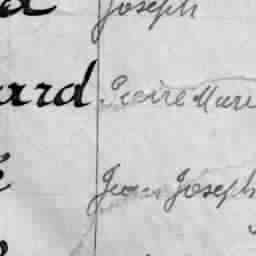 Joseph
ard Pierre Mari
Jean Joseph